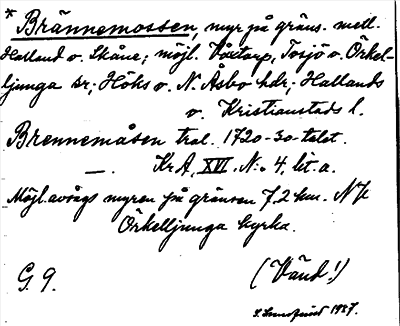 * Brännemossen, myr på gräns. mell.
Halland o. Skåne; möjl. Våxtorp, Torsjö o. Örkel-
ljunga sr; Höks o. N. Åsbo hdr; Hallands
o. Kristianstads l.
Brennemåsen tral. 1720-30-talet.
—. Kr A, XVI. N:o 4, lit. a.
Möjl. avsågs myren på gränsen 7,2 km. NV
Örkelljunga kyrka.
(Vänd!)
G. 9.
1937.